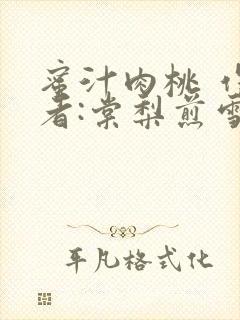 蜜汁肉桃
者:棠梨煎雪
平凡格式化